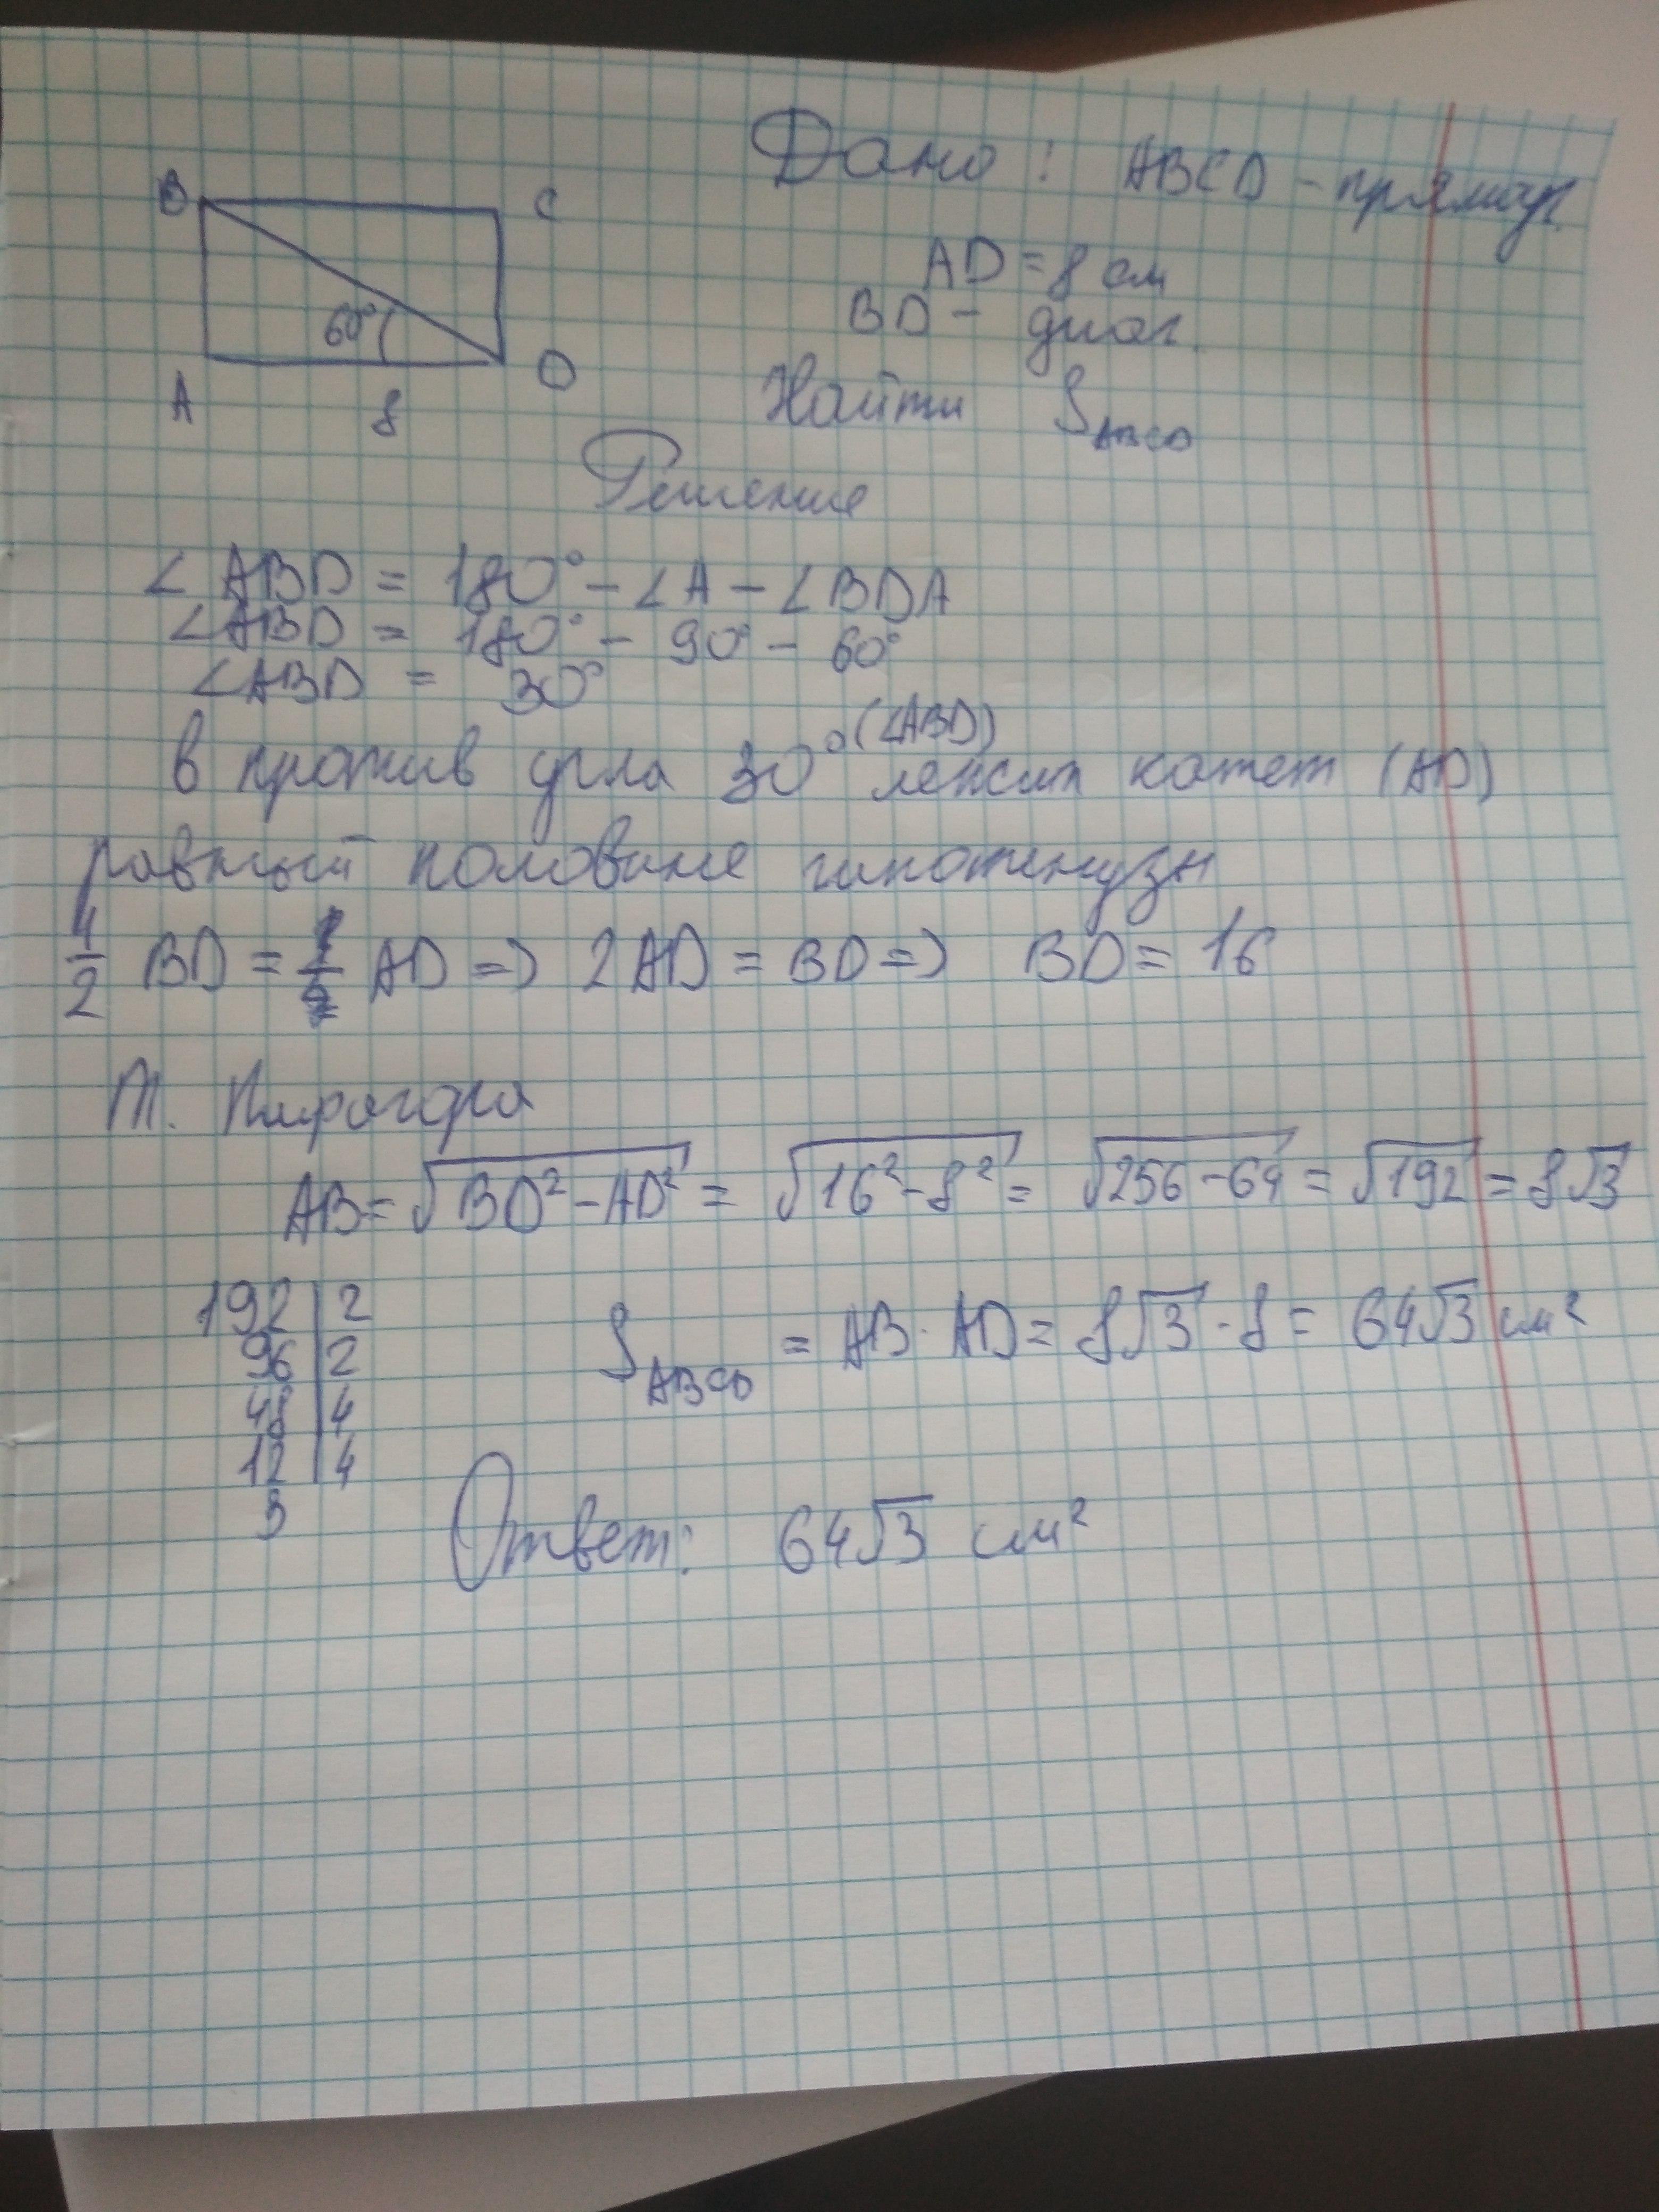 Дано: ABCD - прямоуг.
B C
60°
A 8 D
AD = 8 см
BD - диаг.
Найти S_ABCD
Решение
∠ABD = 180° - ∠A - ∠BDA
∠ABD = 180° - 90° - 60°
∠ABD = 30°
в против угла 30° (∠ABD) лежит катет (AD)
равный половине гипотенузы
1/2 BD = AD => 2AD = BD => BD = 16
т. Пифагора
AB = √(BD² - AD²) = √(16² - 8²) = √(256 - 64) = √192 = 8√3
192 | 2
96 | 2
48 | 4
12 | 4
3
S_ABCD = AB · AD = 8√3 · 8 = 64√3 см²
Ответ: 64√3 см²